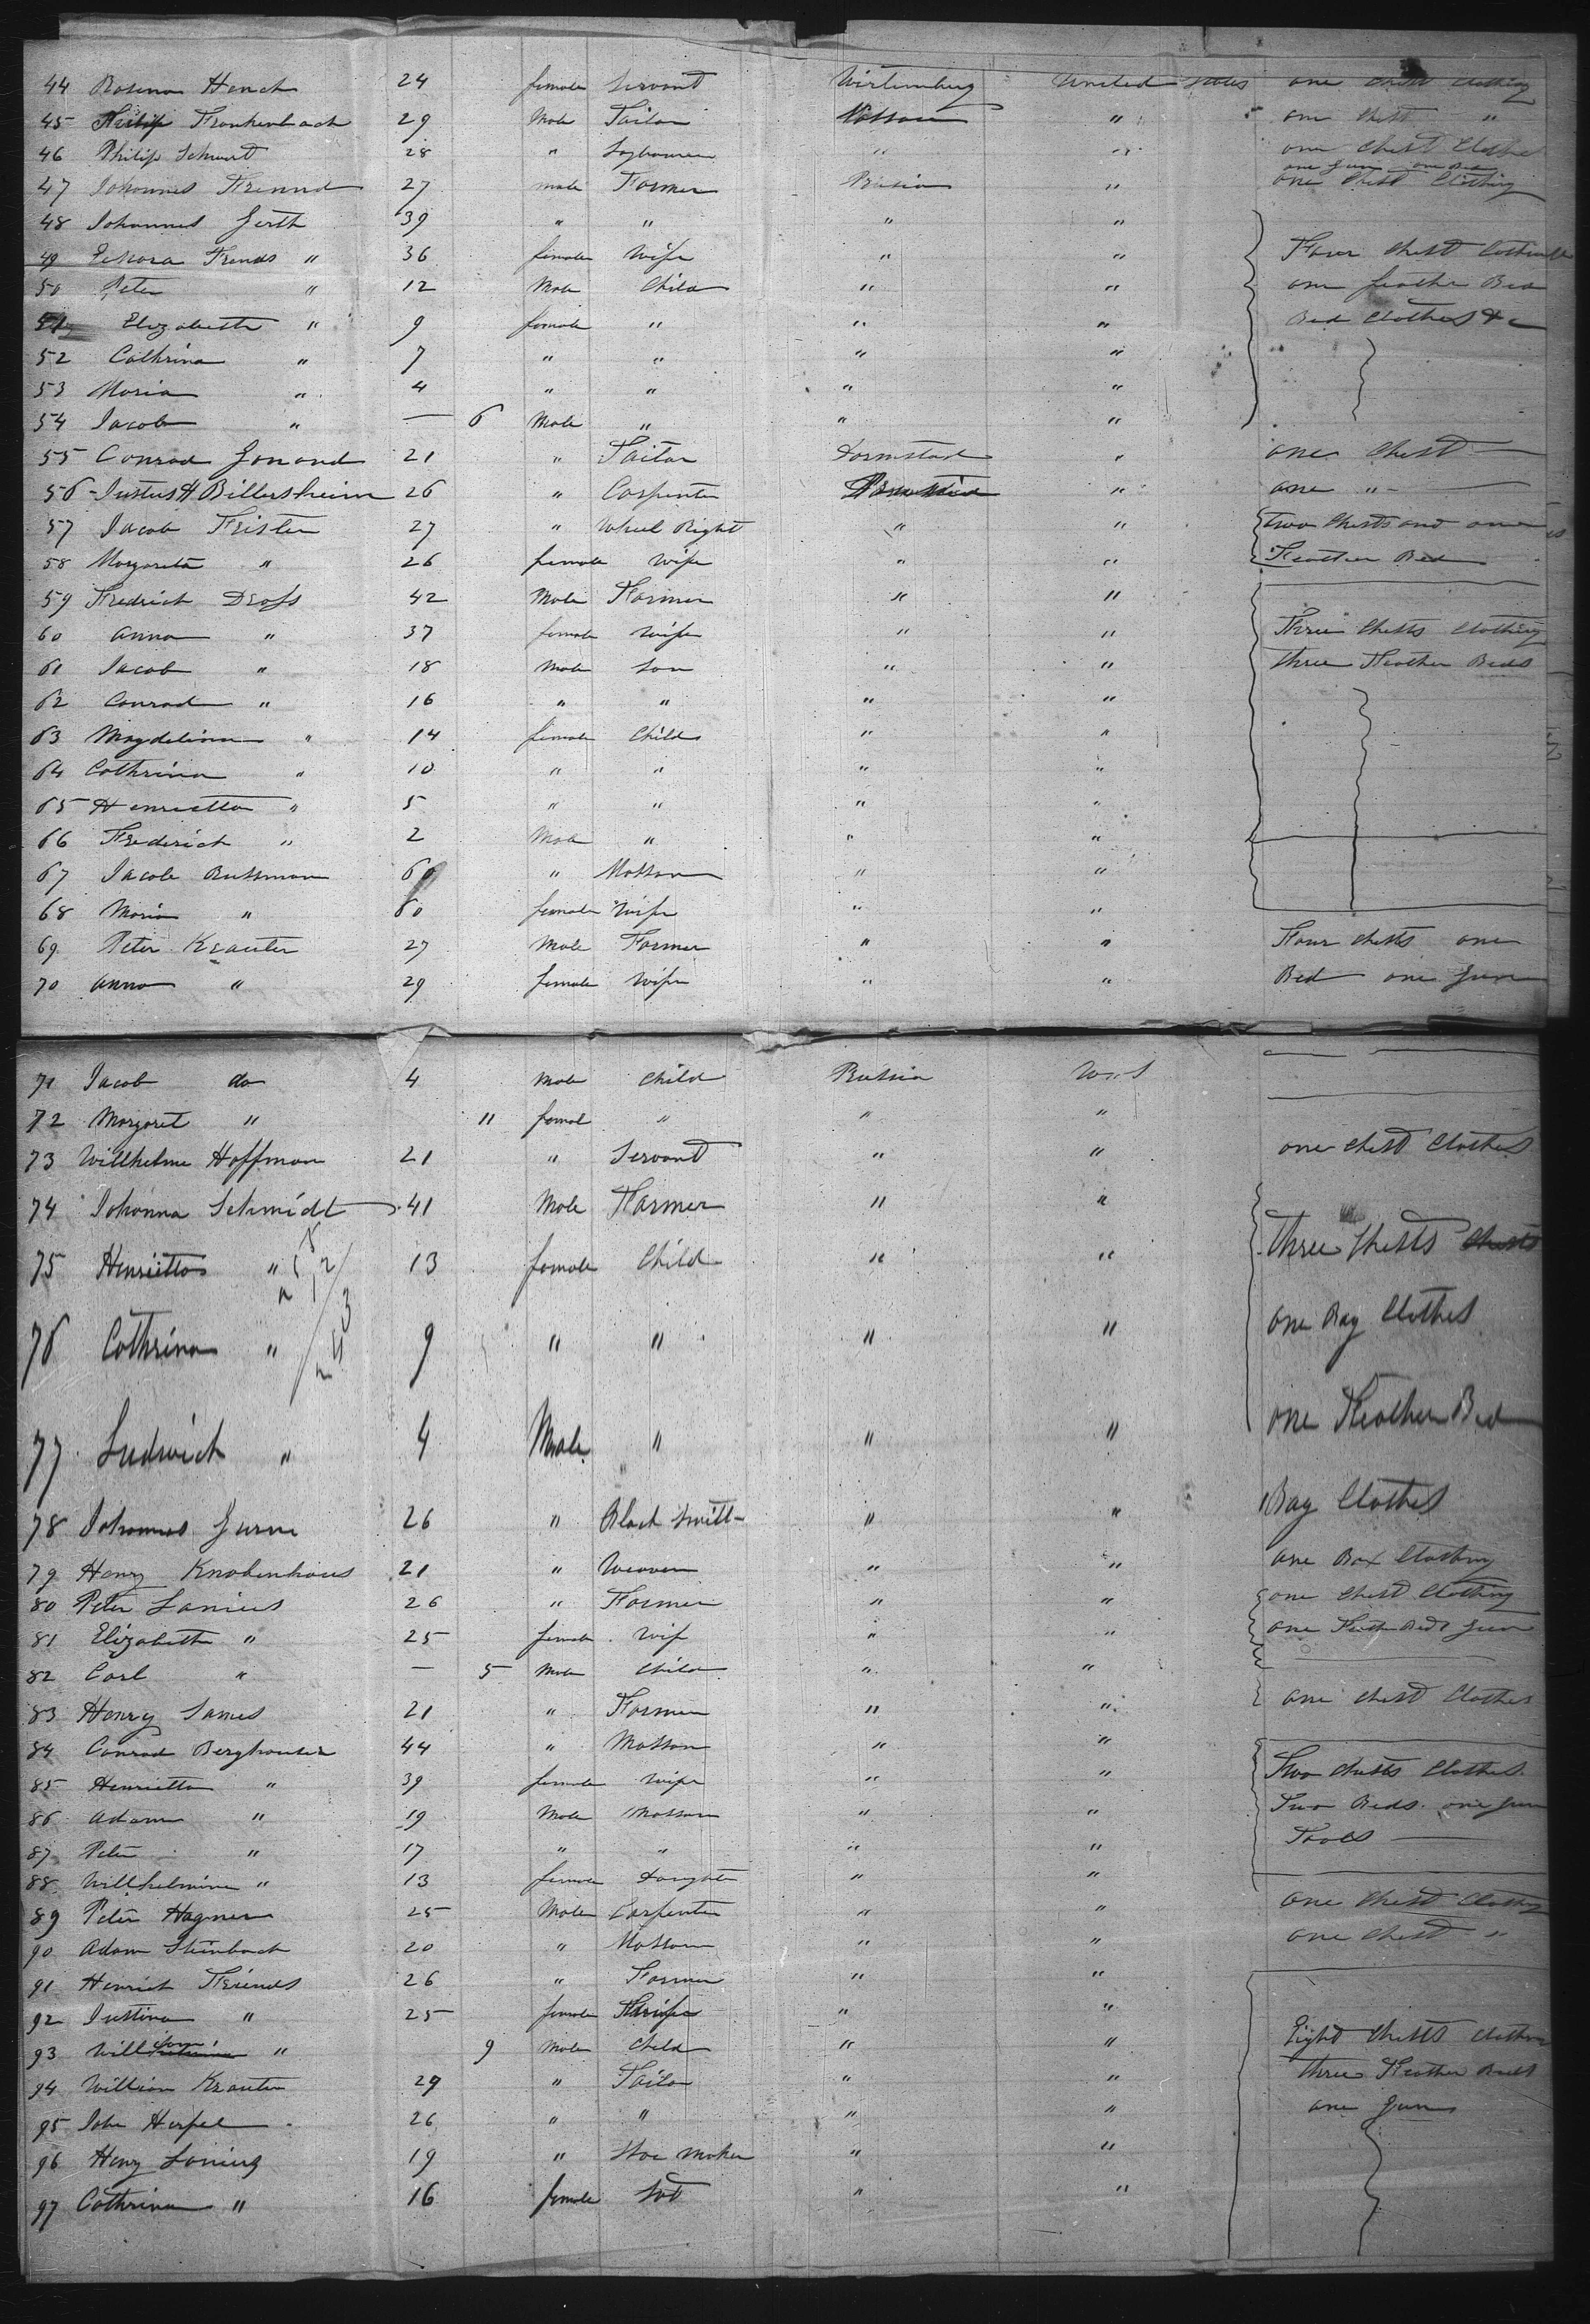 44 Rosena Hench 24 female Servant Wirtemburg United States one Chest Clothing
45 Philip Frankenbach 29 Male Tailor Nassau " " one Chest "
46 Philip Schwart 28 " " " one Chest Clothe
one Gun one Bed
47 Johannes Freund 27 male Farmer Prusia " one Chest Clothing
48 Johannes Gerth 39 " " " "
49 Frends " 36 female Wife " " Four Chest
50 Peter " 12 Male Child " " one feather Bed
51 Elizabeth " 9 female " " " Bed Clothes & c
52 Cathrina " 7 " " " "
53 Maria " 4 " " " "
54 Jacob " — 6 Male " " "
55 Conrad 21 " Tailor Darmstad " one Chest —
56 Justus H Billersheim 26 " Carpenter " one " —
57 Jacob Frister 27 " Wheel Right " " two Chests and one
58 Margareta " 26 female wife " " Feather Bed
59 Fredrich Drass 42 Male Farmer " "
60 Anna " 37 female wife " " Three Chests Clothing
61 Jacob " 18 Male Son " " three Feather Beds
62 Conrad " 16 " " " "
63 Magdelina " 14 female Child " "
64 Cathrina " 10 " " " "
65 Henrietta " 5 " " " "
66 Frederich " 2 Male " " "
67 Jacob Bussman 60 " Masson " "
68 Maria " 60 female wife " "
69 Peter Krauter 27 Male Farmer " " Four Chests one
70 Anna " 29 female wife " " Bed one Gun
71 Jacob do 4 Male Child Prusia
72 Margaret " 11 femal " " "
73 Willhelme Hoffman 21 " Servant " " one Chest Clothes
74 Johanna Schmidt 41 Male Farmer " "
75 Henrietta " 13 female Child " " Three Chests Chests
76 Cathrina " 9 " " " " one Bag Clothes
77 Ludwich " 4 Male " " " one Feather Bed
78 Johannes 26 " Black Smith " " 1 Bag Clothes
79 Henry Knobenhaus 21 " Weaver " " one Box Clothing
80 Peter Lanius 26 " Farmer " " one Chest Clothing
81 Elizabeth " 25 female wife " " one Feather Bed Gun
82 Carl " — 5 Male Child " "
83 Henry James 21 " Farmer " " one Chest Clothes
84 Conrad Berghauser 44 " Masson " "
85 Henrietta " 39 female Wife " " Two Chests Clothes
86 Adam " 19 Male Masson " " Two Beds one Gun
87 Peter " 17 " " " " Tools —
88 Willhelmine " 13 female Daughter " "
89 Peter Hagner 25 Male Carpenter " " one Chest Clothing
90 Adam Steinbach 20 " Masson " " one Chest "
91 Henrich Friends 26 " Farmer " "
92 Justina " 25 female Wife " "
93 William " 9 Male Child " " Eight Chests Clothing
94 William Krauter 29 " Tailor " " three Feather Beds
95 John Herpel 26 " " " " one Gun
96 Henry Lanius 19 " Shoe Maker " "
97 Cathrina " 16 female " "